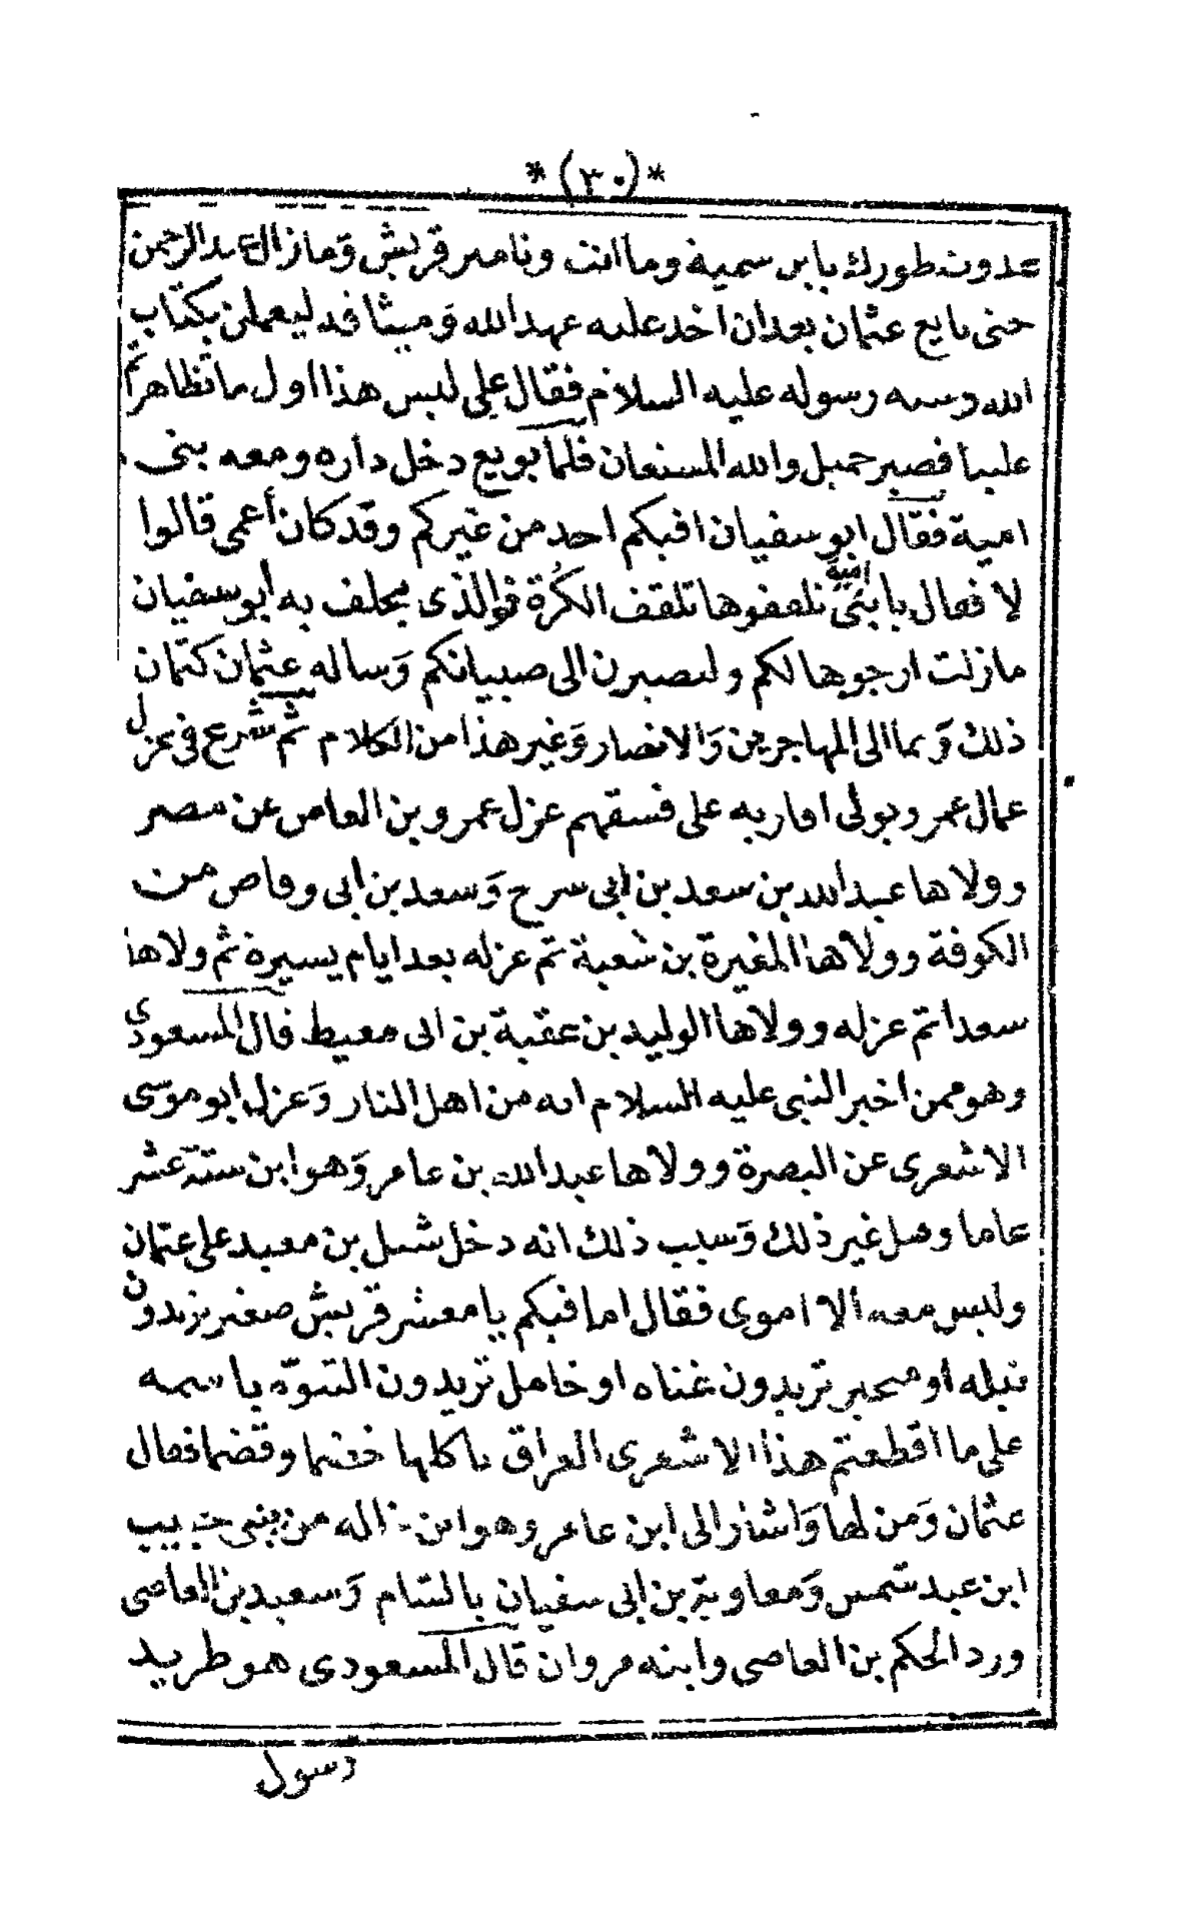 *(٣٠)*
عدوت طورك يابن سمية وما انت وتامير قريش وَمازال عبدالرحمن
حتى بايع عثمان بعد ان اخذ عليه عهد الله وَميثاقه ليعملن بكتاب
الله وسنه رسوله عليه السلام فقال علي ليس هذا اول ما تظاهرتم
علينا فصبر جميل والله المستعان فلما بويع دخل داره ومعه بنى
امية فقال ابو سفيان افيكم احد من غيركم وقد كان أعمى قالوا
لا فقال يا بني امية تلقفوها تلقف الكُرة فوالذى يحلف به أبو سفيان
مازلت ارجوها لكم ولتصيرن الى صبيانكم وَساله عثمان كتمان
ذلك وَنما الى المهاجرين وَالانصار وَغير هذا من الكلام ثم شرع في عزل
عمال عمر وتولى اقاربه على فسقهم عزل عمرو بن العاص عن مصر
وولاها عبد الله بن سعد بن ابى سرح وَسعد بن ابى وقاص من
الكوفة وولاها المغيرة بن شعبة ثم عزله بعد ايام يسيرة ثم ولاها
سعدا ثم عزله وولاها الوليد بن عقبة بن ابى معيط قال المسعودي
وهو ممن اخبر النبى عليه السلام انه من اهل النار وَعزل ابو موسى
الاشعرى عن البصرة وولاها عبد الله بن عامر وَهو ابن ستة عشر
عاما وقيل غير ذلك وَسبب ذلك انه دخل شبل بن معبد على عثمان
وليس معه الا اموى فقال اما فيكم يا معشر قريش صغير تريدون
نبله أو فقير تريدون غناه او خامل تريدون التنوّه باسمه
على ما اقطعتم هذا الاشعرى العراق ياكلها خضما وقضما فقال
عثمان وَمن لها وَاشار الى ابن عامر وهو ابن خاله من بنى حبيب
ابن عبد شمس وَمعاوية بن ابى سفيان بالشام وَسعيد بن العاصى
ورد الحكم بن العاصى وابنه مروان قال المسعودى هو طريد
رسول